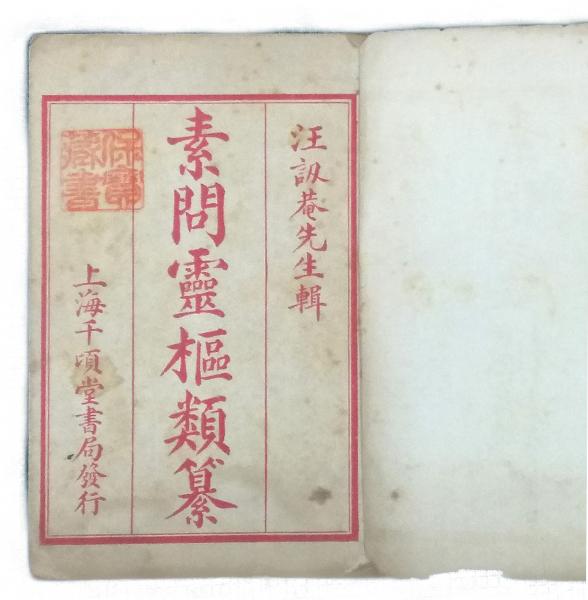 汪訒菴先生輯
素問靈樞類纂
上海千頃堂書局發行
保寶
藏書